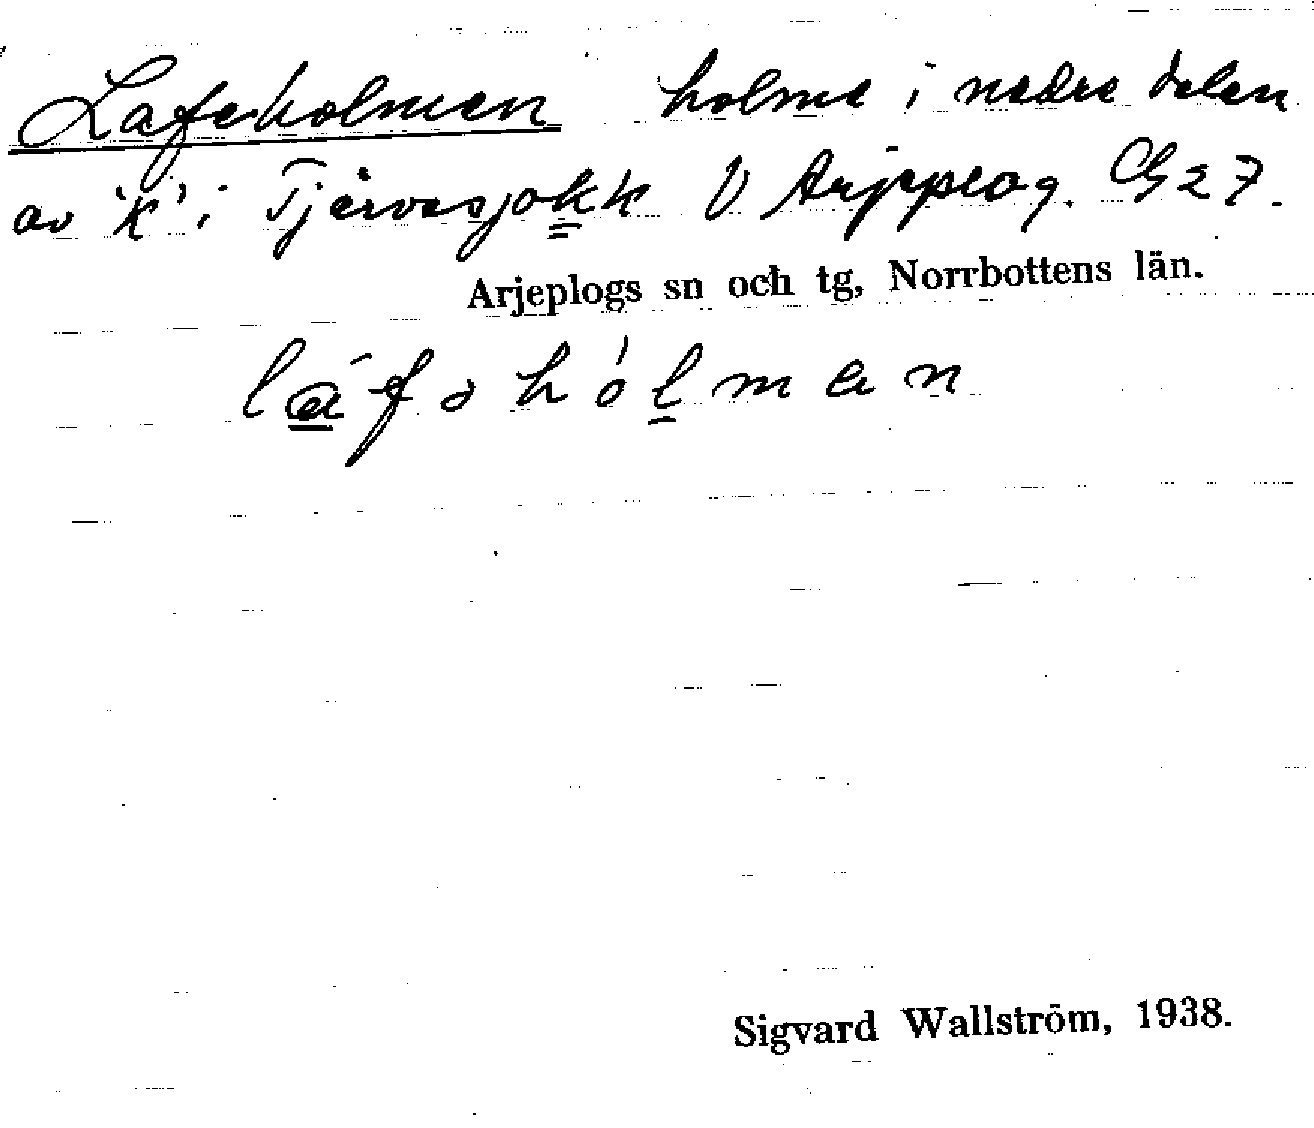 Lafeholmen holme i nedre delen
av 'k' i Tjårvesjokk V Arjeplog. G 27.
Arjeplogs sn och tg, Norrbottens län.
láfəhólmen
Sigvard Wallström, 1938.